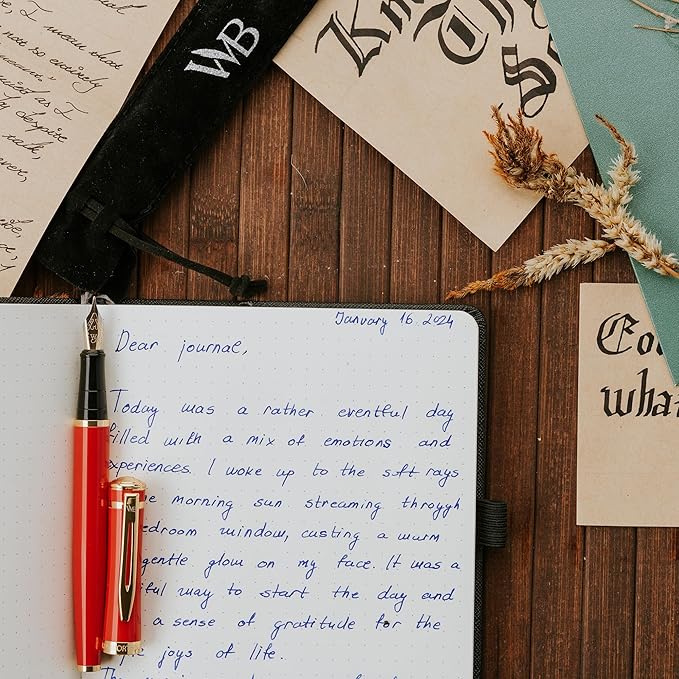 I mean that
not so entirely
as I
despite
talk,
WB
Kn
The
So
January 16 2024
Dear journal,
Today was a rather eventful day
filled with a mix of emotions and
experiences. I woke up to the soft rays
e morning sun streaming through
edroom window, casting a warm
gentle glow on my face. It was a
iful way to start the day and
a sense of gratitude for the
ple joys of life.
what